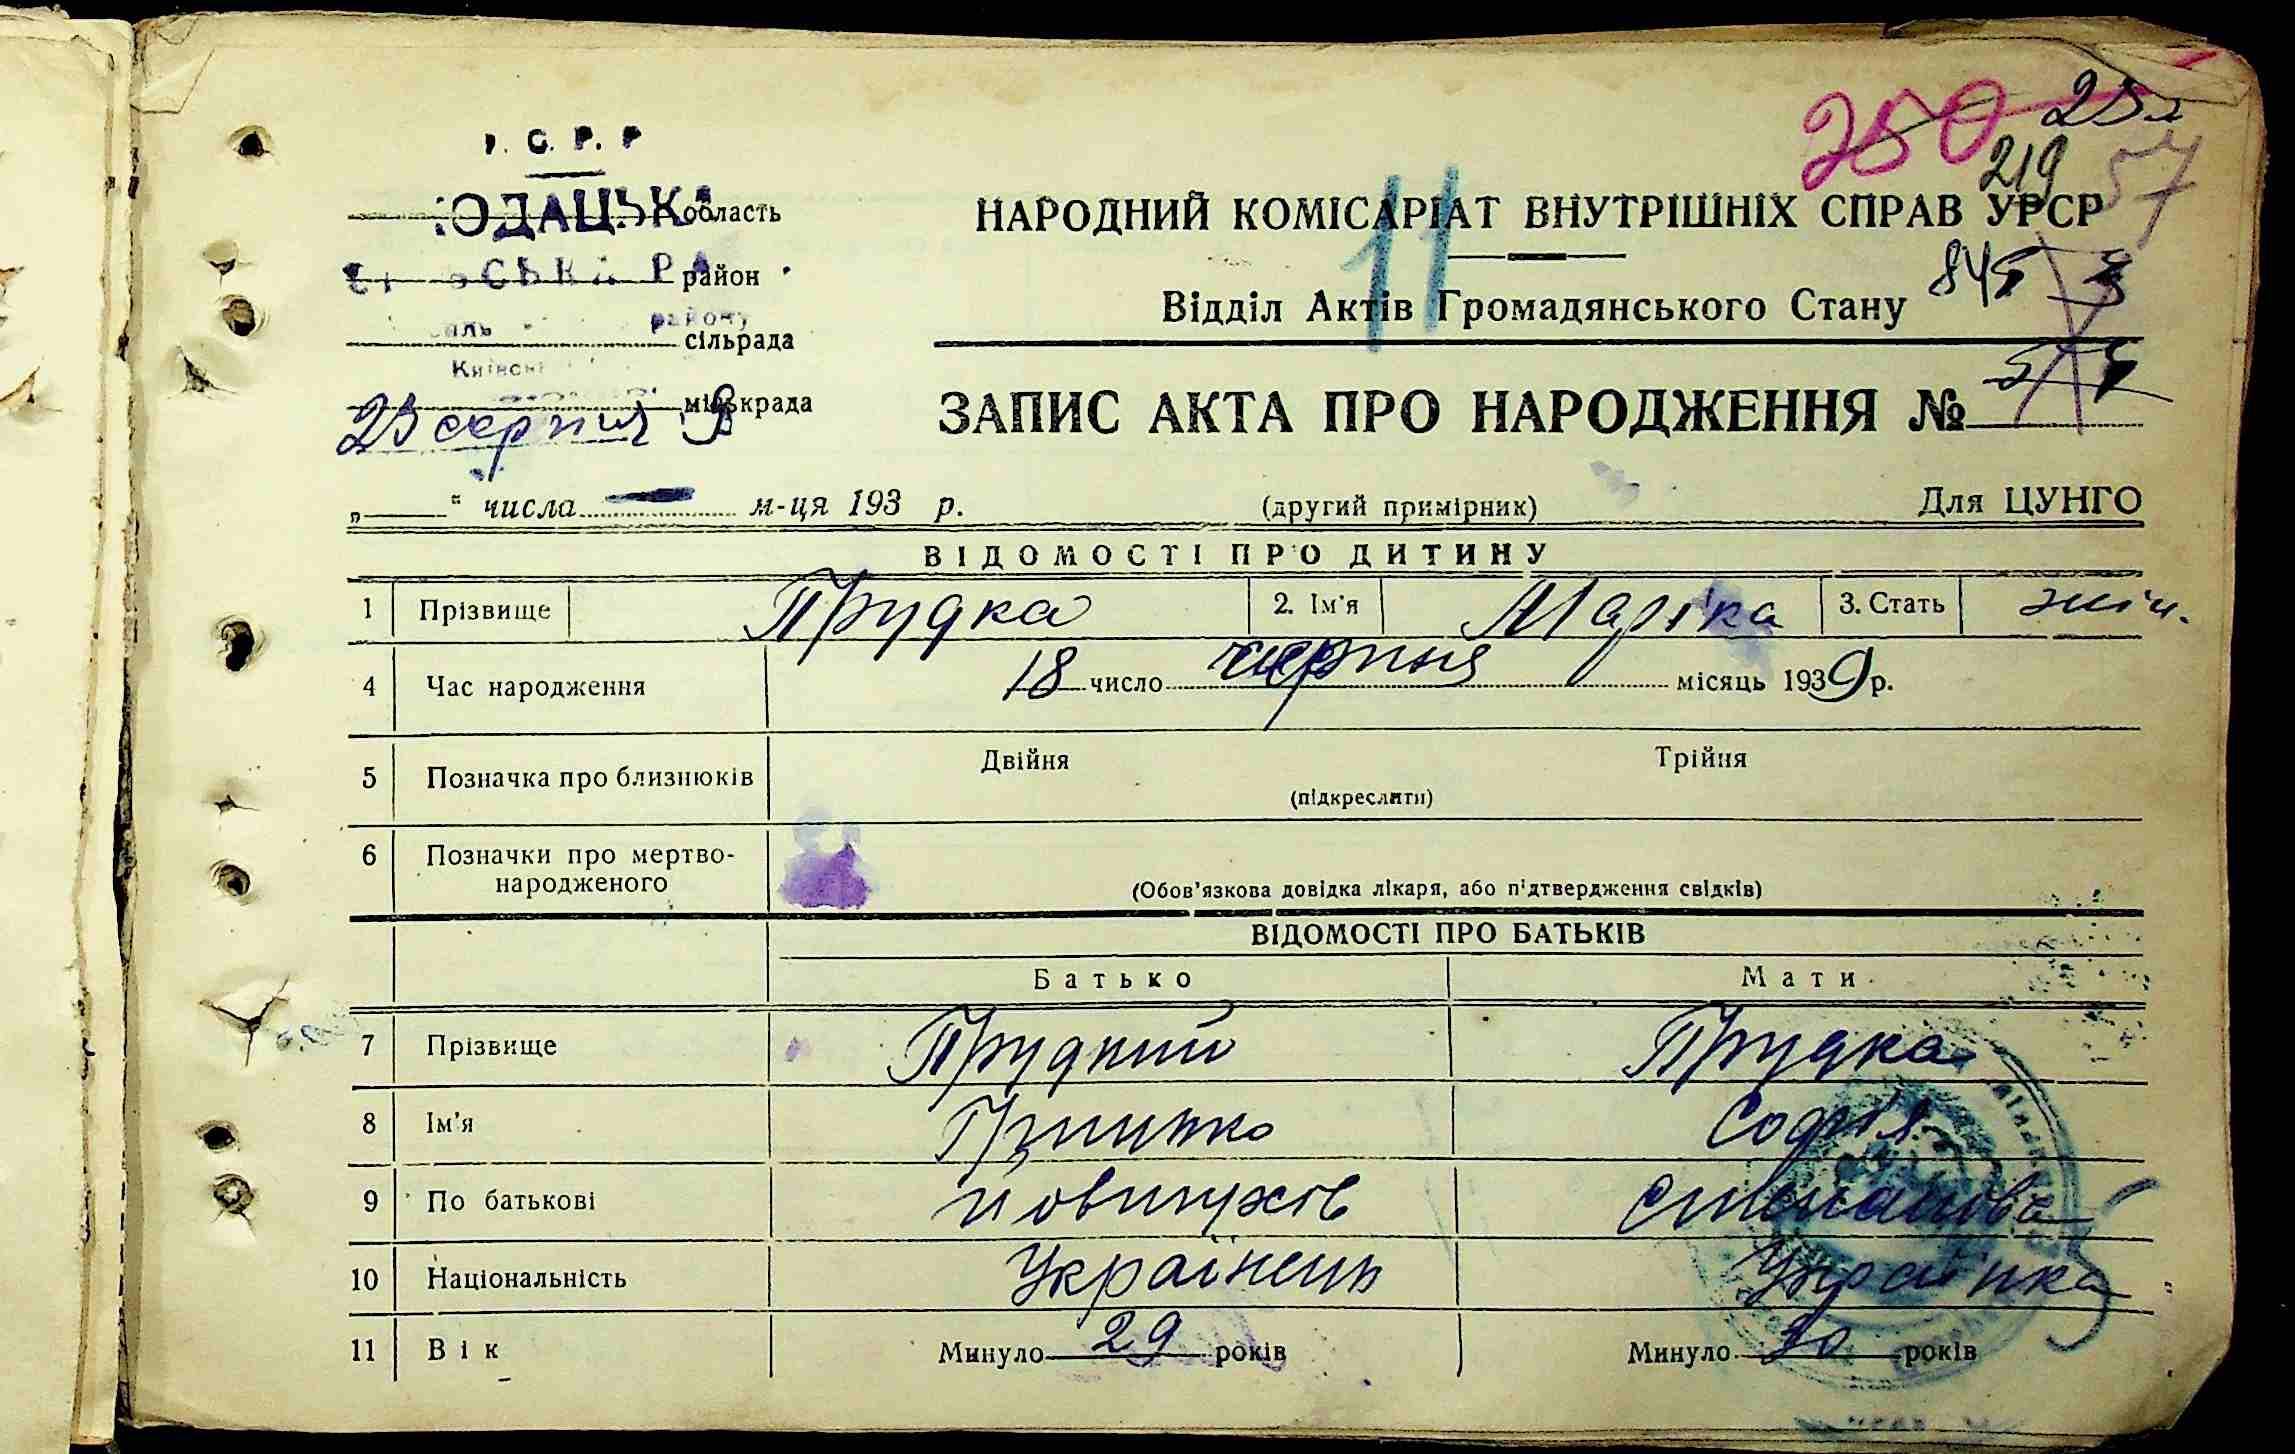 Р. С. Р. Р
ОДАЦЬКА область
район
району
сільрада
Київсь
міськрада
23 серпня 9
250
219
57
11
845
НАРОДНИЙ КОМІСАРІАТ ВНУТРІШНІХ СПРАВ УРСР
Відділ Актів Громадянського Стану
ЗАПИС АКТА ПРО НАРОДЖЕННЯ №
„ “ числа м-ця 193 р.
(другий примірник)
Для ЦУНГО
ВІДОМОСТІ ПРО ДИТИНУ
1 Прізвище Прудка 2. Ім'я Марійка 3. Стать жін.
4 Час народження 18 число серпня місяць 1939 р.
5 Позначка про близнюків Двійня Трійня
(підкреслити)
6 Позначки про мертво-
народженого
(Обов'язкова довідка лікаря, або підтвердження свідків)
ВІДОМОСТІ ПРО БАТЬКІВ
Батько Мати
7 Прізвище Прудкий Прудка
8 Ім'я Грицько Софія
9 По батькові Йовтухів Степанівна
10 Національність Українець Українка
11 Вік Минуло 29 років Минуло 30 років